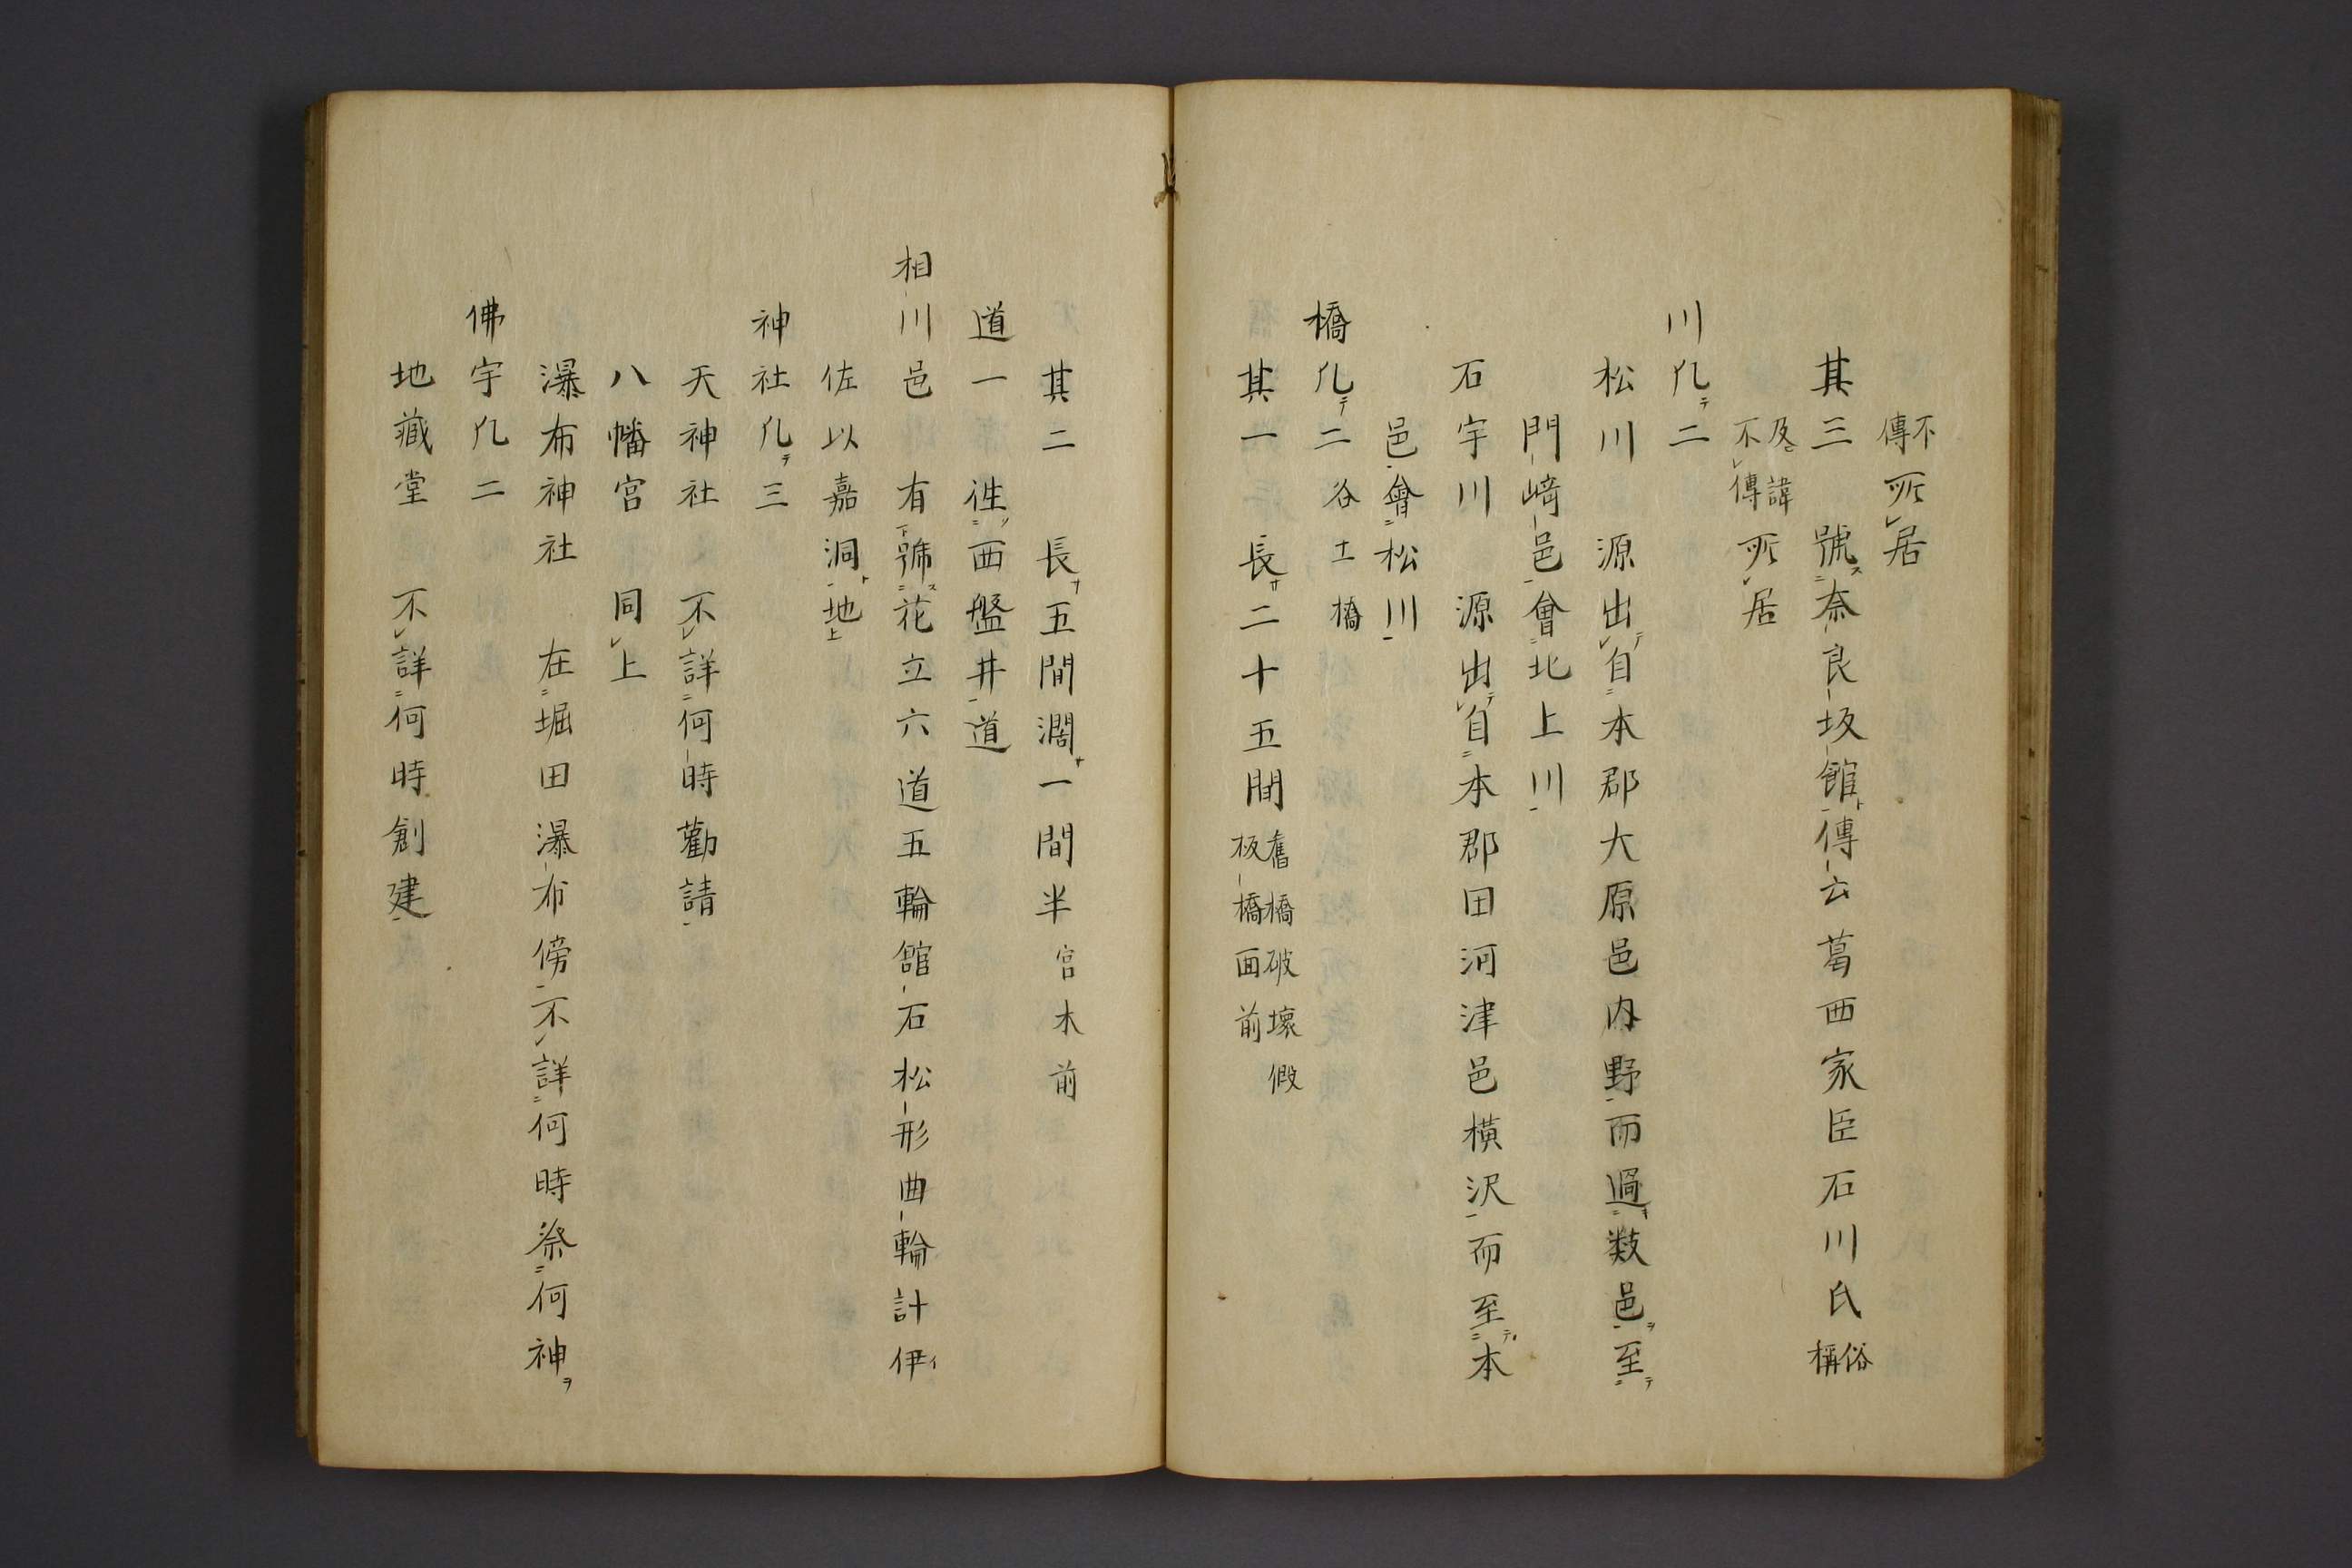 不傳所居
其三 號奈良坂館傳云葛西家臣石川氏俗稱
及諱不傳所居
川凡二
松川 源出自本郡大原邑内野而過数邑至
門﨑邑會北上川
石宇川 源出自本郡田河津邑横沢而至本
邑會松川
橋凡二谷土橋
其一 長二十五間舊橋破壞假板橋面前
其二 長五間濶一間半宮木前
道一徃西盤井道
相川邑 有號花立六道五輪館石松形曲輪計伊
佐以嘉洞地
神社凡三
天神社 不詳何時勸請
八幡宮 同上
瀑布神社 在堀田瀑布傍不詳何時祭何神
佛宇凡二
地藏堂 不詳何時創建